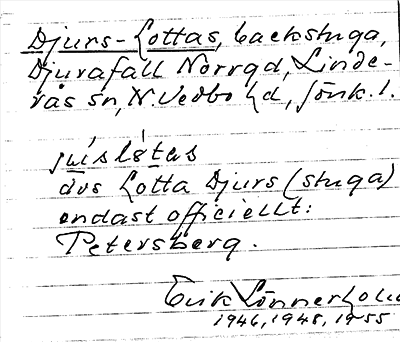 Djurs-Lottas, backstuga,
Djurafall Norrgd, Linde-
rås sn, N. Vedbo hd, Jönk. l.
dvs Lotta Djurs (stuga)
endast officiellt:
Petersberg.
Erik Lönnerholm
1946, 1948, 1955